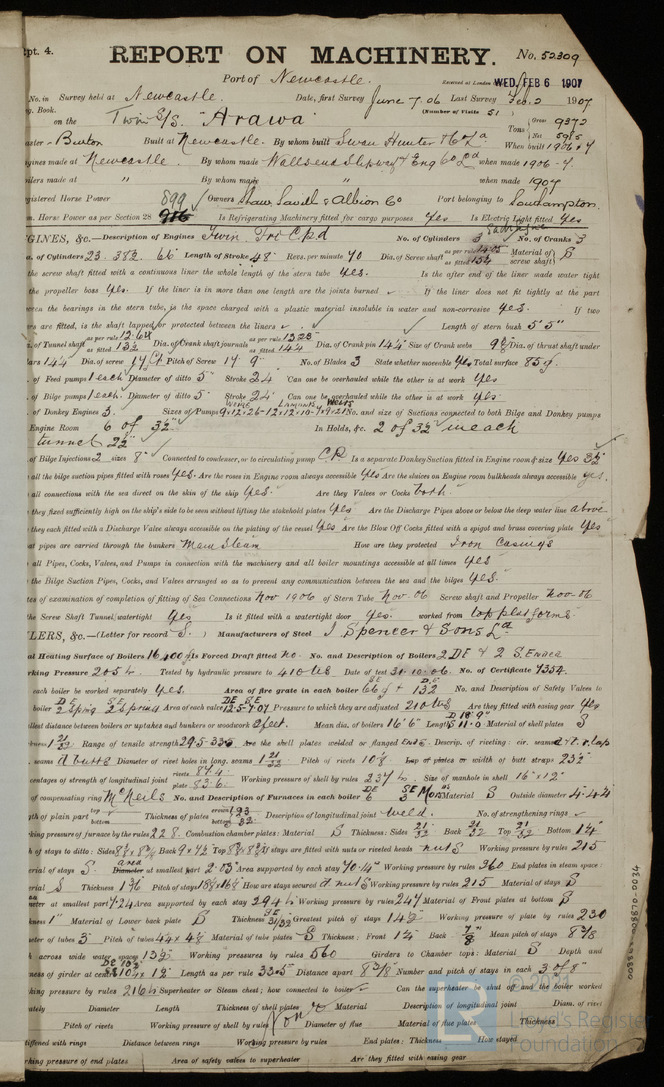 Rpt. 4.
REPORT ON MACHINERY. No. 52309
Port of Newcastle. Received at London WED. FEB 6 1907
No. in Survey held at Newcastle. Date, first Survey June 7. 06 Last Survey Feb. 2 1907
Reg. Book. (Number of Visits 51)
on the Twin S/S "Arawa" Tons Gross 9372 Net 5915
Master Burton Built at Newcastle. By whom built Swan Hunter & Co Ld When built 1906-7
Engines made at Newcastle. By whom made Wallsend Slipway & Eng Co Ld when made 1906-7.
Boilers made at " By whom made " when made 1907
Registered Horse Power 899 Owners Shaw Savill & Albion Co Port belonging to Southampton.
Nom. Horse Power as per Section 28 916 Is Refrigerating Machinery fitted for cargo purposes Yes Is Electric Light fitted Yes
ENGINES, &c.—Description of Engines Twin Tri C.P.D No. of Cylinders 3 each engine No. of Cranks 3
Dia. of Cylinders 23. 38½. 66" Length of Stroke 48" Revs. per minute 70 Dia. of Screw shaft as per rule as fitted Material of screw shaft S
Is the screw shaft fitted with a continuous liner the whole length of the stern tube Yes. Is the after end of the liner made water tight
in the propeller boss Yes. If the liner is in more than one length are the joints burned If the liner does not fit tightly at the part
between the bearings in the stern tube, is the space charged with a plastic material insoluble in water and non-corrosive Yes. If two
liners are fitted, is the shaft lapped or protected between the liners Length of stern bush 5' 5"
Dia. of Tunnel shaft as per rule as fitted 13½ Dia. of Crank shaft journals as per rule 13.28 as fitted 14¼ Dia. of Crank pin 14¼" Size of Crank webs Dia. of thrust shaft under
collars 14¼ Dia. of screw Pitch of Screw 17. 9" No. of Blades 3 State whether moveable Yes Total surface 85 ф.
No. of Feed pumps 1 each Diameter of ditto 5" Stroke 24" Can one be overhauled while the other is at work Yes
No. of Bilge pumps 1 each. Diameter of ditto 5" Stroke 24" Can one be overhauled while the other is at work Yes
No. of Donkey Engines 3. Sizes of Pumps No. and size of Suctions connected to both Bilge and Donkey pumps
In Engine Room 6 of 3½" In Holds, &c. 2 of 3½ in each
tunnel 2½"
No. of Bilge Injections 2 sizes 8" Connected to condenser, or to circulating pump C.P. Is a separate Donkey Suction fitted in Engine room & size Yes 3½"
Are all the bilge suction pipes fitted with roses Yes. Are the roses in Engine room always accessible Yes Are the sluices on Engine room bulkheads always accessible Yes.
Are all connections with the sea direct on the skin of the ship Yes. Are they Valves or Cocks both.
Are they fixed sufficiently high on the ship's side to be seen without lifting the stokehold plates Yes Are the Discharge Pipes above or below the deep water line above
Are they each fitted with a Discharge Valve always accessible on the plating of the vessel Yes Are the Blow Off Cocks fitted with a spigot and brass covering plate Yes
What pipes are carried through the bunkers Main Steam How are they protected Iron Casings
Are all Pipes, Cocks, Valves, and Pumps in connection with the machinery and all boiler mountings accessible at all times Yes
Are the Bilge Suction Pipes, Cocks, and Valves arranged so as to prevent any communication between the sea and the bilges Yes.
Dates of examination of completion of fitting of Sea Connections Nov 1906 of Stern Tube Nov. 06 Screw shaft and Propeller Nov-06
Is the Screw Shaft Tunnel watertight Yes Is it fitted with a watertight door Yes. worked from top platforms.
BOILERS, &c.—(Letter for record S.) Manufacturers of Steel J. Spencer & Sons Ld
Total Heating Surface of Boilers Is Forced Draft fitted No. No. and Description of Boilers 2 DE & 2 S. Ended
Working Pressure 205 lb. Tested by hydraulic pressure to 410 lbs Date of test 31-10-06. No. of Certificate 7354.
Can each boiler be worked separately Yes. Area of fire grate in each boiler SE 66 ф + DE 132 No. and Description of Safety Valves to
each boiler DE 2 Spring SE 2 Spring Area of each valve DE 12.57 SE 7.07 Pressure to which they are adjusted 210 lbs Are they fitted with easing gear Yes
Smallest distance between boilers or uptakes and bunkers or woodwork 2 feet. Mean dia. of boilers 16' 6" Length D 18' 9" S 11. 0 Material of shell plates S
Thickness 1 21/32 Range of tensile strength 29.5-33.5 Are the shell plates welded or flanged Ends. Descrip. of riveting: cir. seams d & t. r. lap
long. seams d butts Diameter of rivet holes in long. seams 1 21/32 Pitch of rivets 10⅞ Lap of plates or width of butt straps 23½"
Percentages of strength of longitudinal joint rivets 87.4. plate 83.6. Working pressure of shell by rules 237 lb. Size of manhole in shell 16" x 12"
Size of compensating ring McNeils No. and Description of Furnaces in each boiler DE 6 SE 3 Mor. Material S Outside diameter
Length of plain part top bottom Thickness of plates crown bottom Description of longitudinal joint Weld. No. of strengthening rings
Working pressure of furnace by the rules 228. Combustion chamber plates: Material S Thickness: Sides 21/32 Back 21/32 Top 21/32 Bottom 1¼"
Pitch of stays to ditto: Sides Back 9 x 7½ Top If stays are fitted with nuts or riveted heads nuts Working pressure by rules 215
Material of stays S. Diameter area at smallest part 2.03" Area supported by each stay Working pressure by rules 360 End plates in steam space:
Material S Thickness Pitch of stays How are stays secured d nuts Working pressure by rules 215 Material of stays S
Diameter at smallest part 7.24 Area supported by each stay Working pressure by rules 247 Material of Front plates at bottom S
Thickness 1" Material of Lower back plate S Thickness SE 31/32" Greatest pitch of stays 14½" Working pressure of plate by rules 230
Diameter of tubes 3" Pitch of tubes Material of tube plates S Thickness: Front 1¼" Back ⅞" Mean pitch of stays 8⅝
Pitch across wide water spaces 13½" Working pressures by rules 560 Girders to Chamber tops: Material S Depth and
thickness of girder at centre Length as per rule 33.5" Distance apart 8⅜ Number and pitch of stays in each 3 of 8"
Working pressure by rules 216 lb Superheater or Steam chest; how connected to boiler Can the superheater be shut off and the boiler worked
separately Diameter Length Thickness of shell plates Material Description of longitudinal joint Diam. of rivet
Pitch of rivets Working pressure of shell by rules None Diameter of flue Material of flue plates Thickness
If stiffened with rings Distance between rings Working pressure by rules End plates: Thickness How stayed
Working pressure of end plates Area of safety valves to superheater Are they fitted with easing gear
008864-008870-0034
© 2021
Lloyd's Register
Foundation